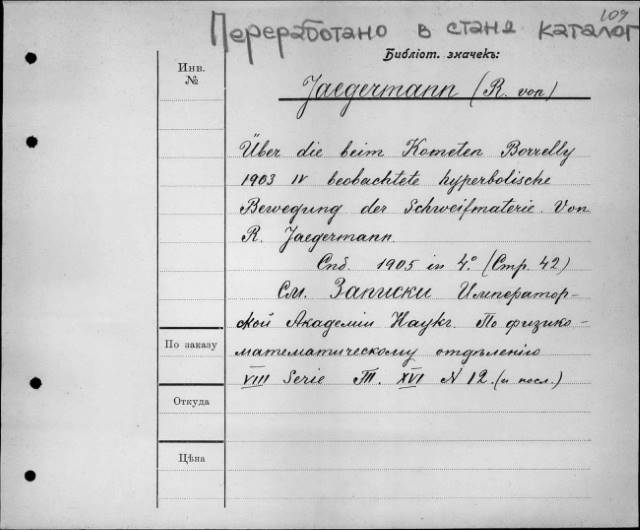 109
Переработано в станд каталог
Библіот. значекъ:
Инв.
№
Jaegermann (R. von)
Über die beim Kometen Borrelly
1903 IV beobachtete hyperbolische
Bewegung der Schweifmaterie. Von
R. Jaegermann.
Спб. 1905 in 4.° (Стр. 42)
См. Записки Император-
ской Академіи Наукъ. По физико-
математическому отдѣленію
VIII Serie Т. XVI N 12. (и посл.)
По заказу
Откуда
Цѣна